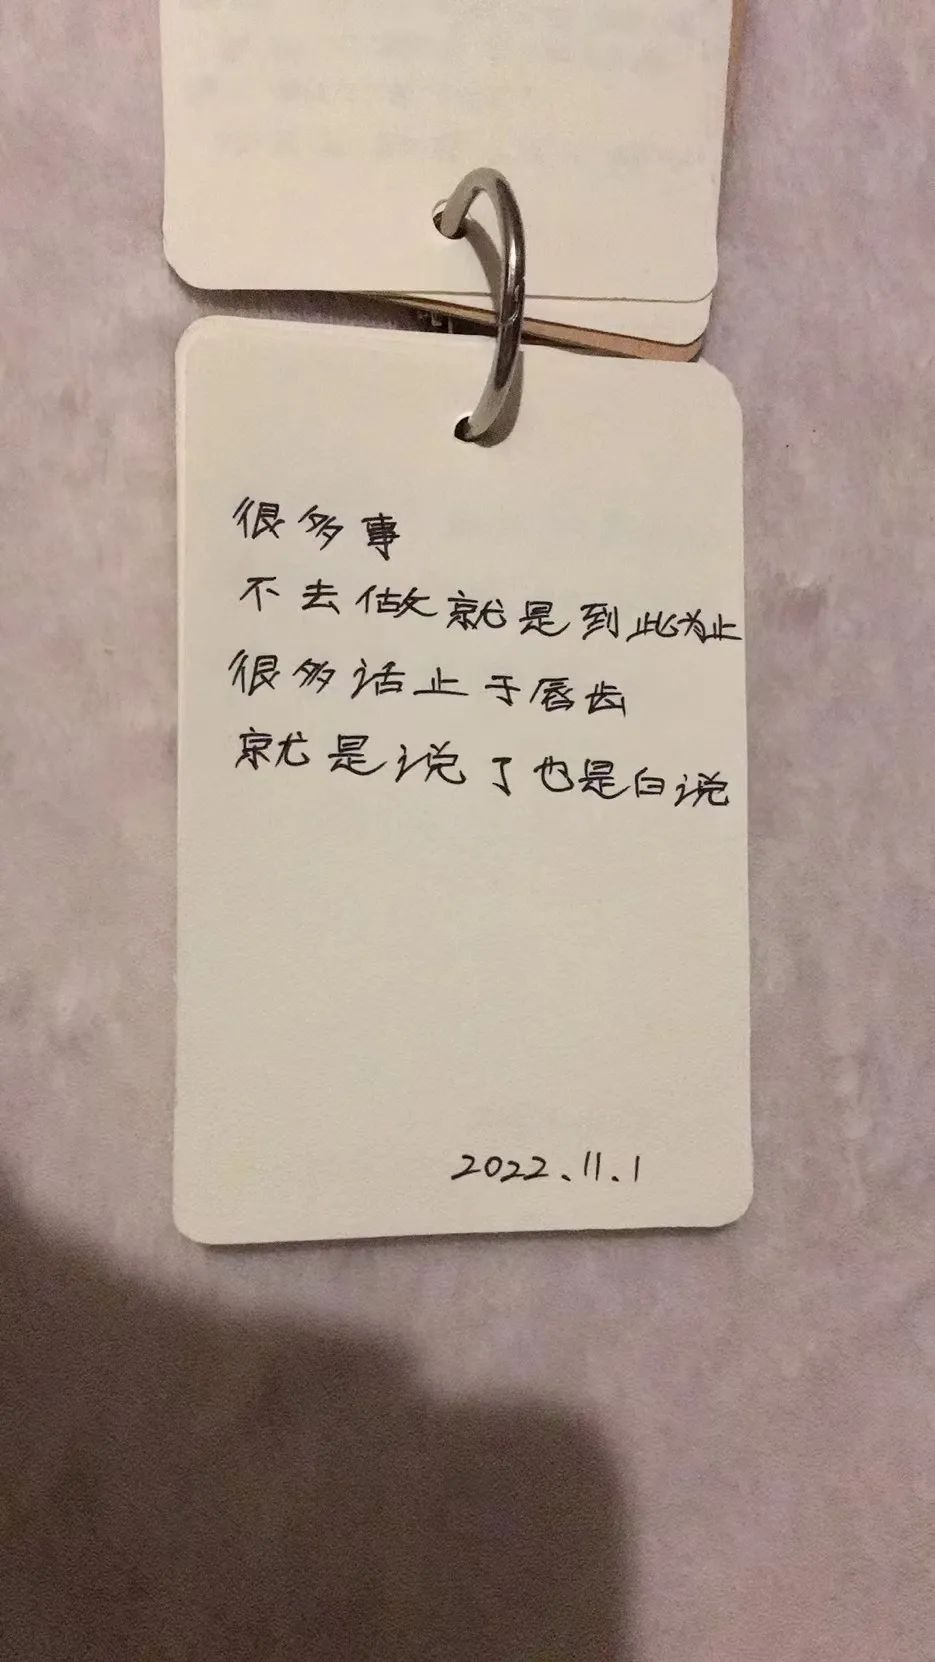 很多事
不去做就是到此为止
很多话止于唇齿
就是说了也是白说
2022.11.1